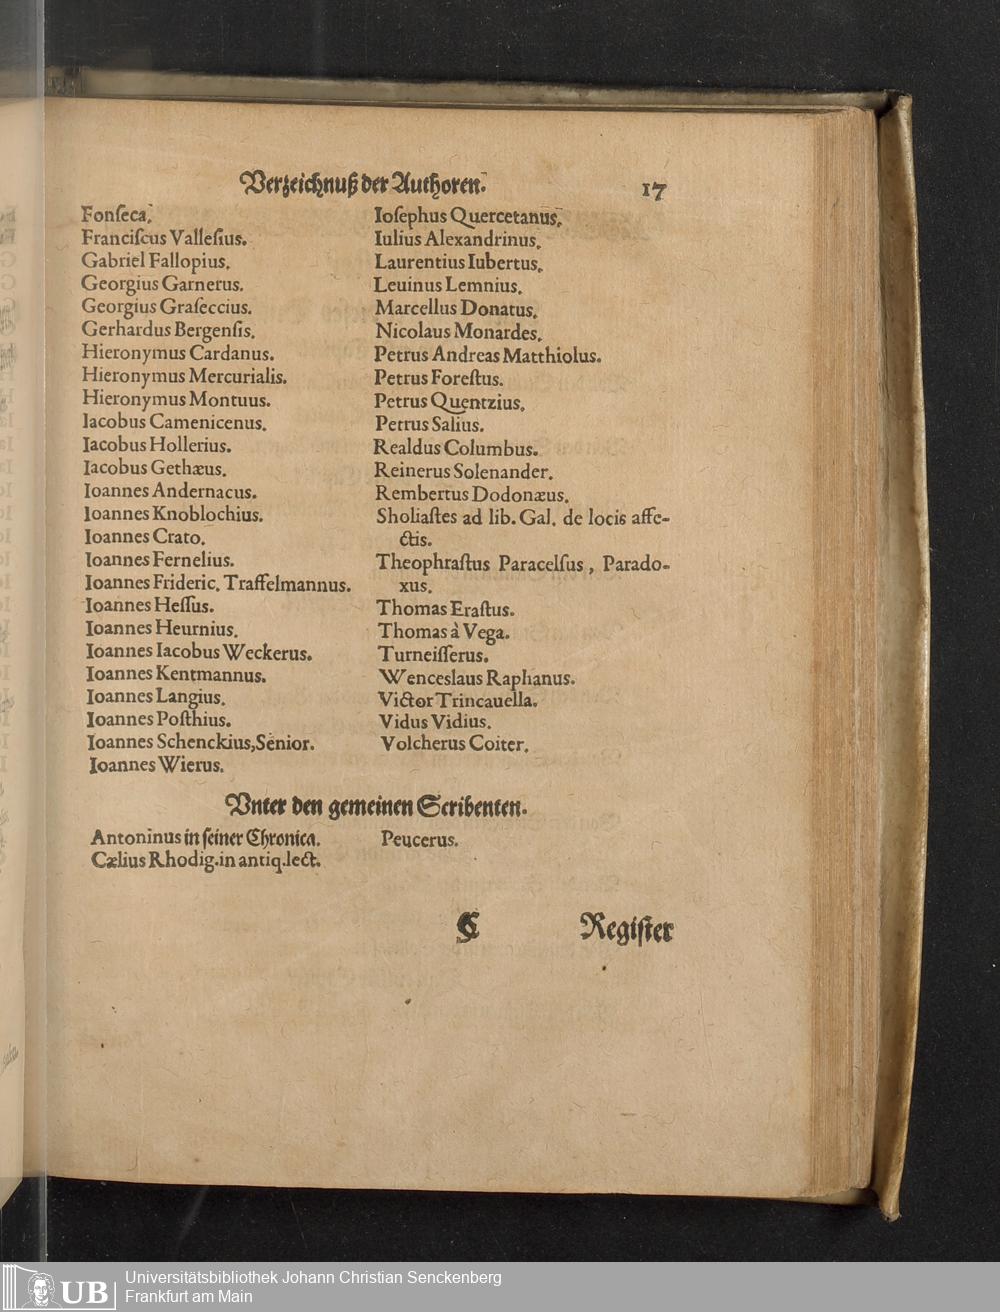 Verzeichnuß der Authoren. 17
Fonſeca.
Franciſcus Valleſius.
Gabriel Fallopius.
Georgius Garnerus.
Georgius Graſeccius.
Gerhardus Bergenſis.
Hieronymus Cardanus.
Hieronymus Mercurialis.
Hieronymus Montuus.
Iacobus Camenicenus.
Iacobus Hollerius.
Iacobus Gethæus.
Ioannes Andernacus.
Ioannes Knoblochius.
Ioannes Crato.
Ioannes Fernelius.
Ioannes Frideric. Traffelmannus.
Ioannes Heſſus.
Ioannes Heurnius.
Ioannes Iacobus Weckerus.
Ioannes Kentmannus.
Ioannes Langius.
Ioannes Poſthius.
Ioannes Schenckius, Senior.
Ioannes Wierus.
Ioſephus Quercetanus.
Iulius Alexandrinus.
Laurentius Iubertus.
Leuinus Lemnius.
Marcellus Donatus.
Nicolaus Monardes.
Petrus Andreas Matthiolus.
Petrus Foreſtus.
Petrus Quentzius.
Petrus Salius.
Realdus Columbus.
Reinerus Solenander.
Rembertus Dodonæus.
Sholiaſtes ad lib. Gal. de locis affe-
ctis.
Theophraſtus Paracelſus, Parado-
xus.
Thomas Eraſtus.
Thomas à Vega.
Turneiſſerus.
Wenceslaus Raphanus.
Victor Trincauella.
Vidus Vidius.
Volcherus Coiter.
Vnter den gemeinen Scribenten.
Antoninus in ſeiner Chronica.
Cælius Rhodig. in antiq. lect.
Peucerus.
C Regiſter
UB
Universitätsbibliothek Johann Christian Senckenberg
Frankfurt am Main